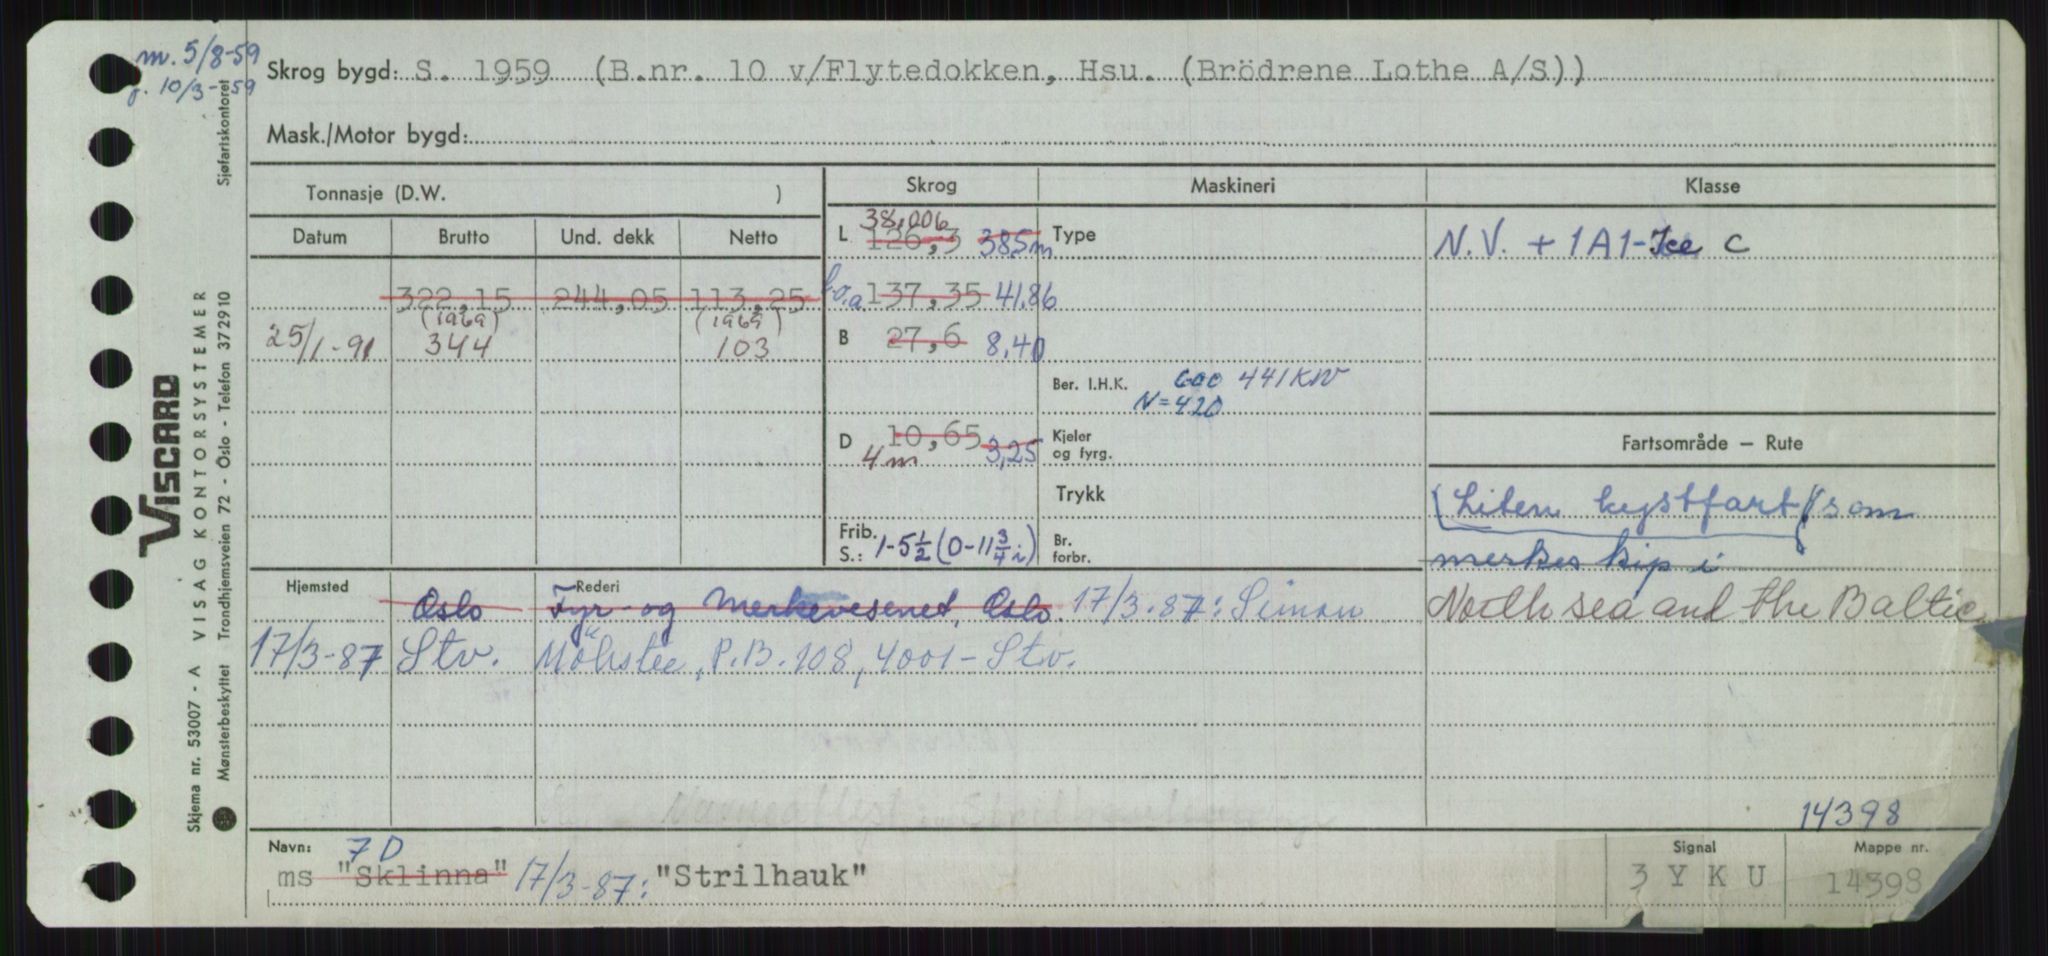 m. 5/8-59
10/3-59
Skrog bygd: S. 1959 (B.nr. 10 v/Flytedokken, Hsu. (Brödrene Lothe A/S))
Mask./Motor bygd:
Tonnasje (D.W. )
Skrog
Maskineri
Klasse
Datum
Brutto
Und. dekk
Netto
38,006
L 126,3 38,5m
Type
N.V. + 1A1-Ice C
322,15 244,05 113,25
l.o.a 137,35 41.86
(1969) (1969)
25/1-91 344 103
B 27,6 8,40
Ber. I.H.K. 600 441 KW
N=420
D 10,65 3,25
4 m
Kjeler
og fyrg.
Fartsområde — Rute
Trykk
(Liten kystfart) som
Frib.
S.: 1-5½ (0-11¾ i)
Br.
forbr.
merkeskip i
North sea and the Baltic
Hjemsted
Rederi
Oslo Fyr- og Merkevesenet, Oslo. 17/3-87: Simon
17/3-87 Stv. Møkster, P.B. 108, 4001-Stv.
14398
Navn: 7D
ms "Sklinna" 17/3-87: "Strilhauk"
Signal
3 Y K U
Mappe nr.
14398
Sjøfartskontoret
VISCARD
VISAG KONTORSYSTEMER
Skjema nr. 53007 - A
Mønsterbeskyttet Trondhjemsveien 72 - Oslo - Telefon 372910